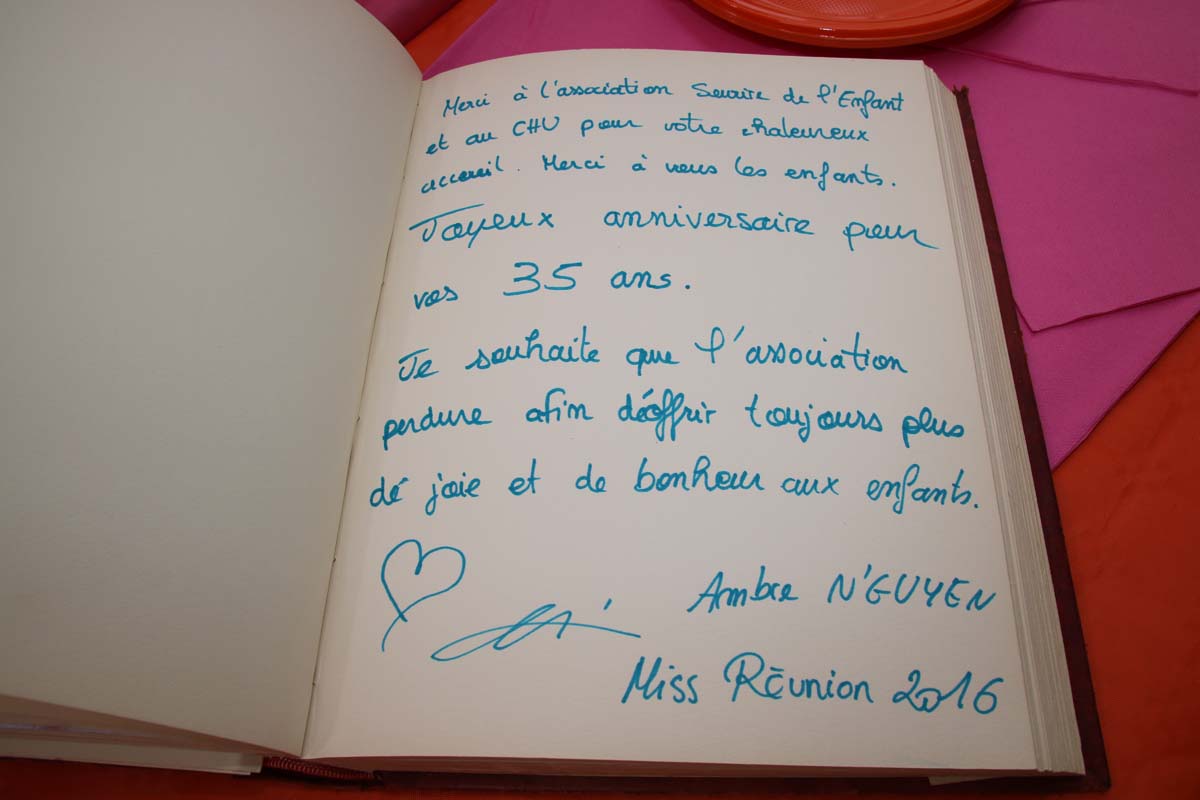 Merci à l'association Sourire de l'Enfant
et au CHU pour votre chaleureux
accueil. Merci à vous les enfants.
Joyeux anniversaire pour
vos 35 ans.
Je souhaite que l'association
perdure afin déoffrir toujours plus
dé joie et de bonheur aux enfants.
Ambre N'GUYEN
Miss Réunion 2016